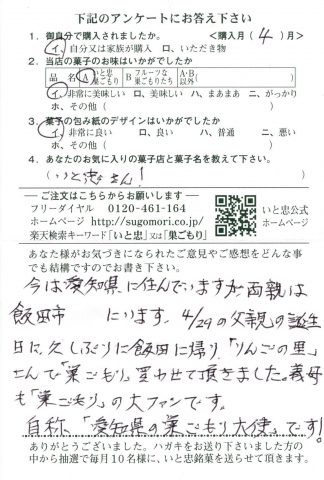 下記のアンケートにお答え下さい
1．御自分で購入されましたか。 ＜購入月（4）月＞
イ、自分又は家族が購入 ロ、いただき物
2．当店の菓子のお味はいかがでしたか
品名 A いと忠巣ごもり B フルーツな巣ごもりたち A・B以外（ ）
イ、非常に美味しい ロ、美味しい ハ、まあまあ ニ、がっかり
ホ、その他（ ）
3．菓子の包み紙のデザインはいかがでしたか
イ、非常に良い ロ、良い ハ、普通 ニ、悪い
ホ、その他（ ）
4．あなたのお気に入りの菓子店と菓子名を教えて下さい。
（いと忠さん！ ）
ご注文はこちらからお願いします
フリーダイヤル 0120-461-164
ホームページ http://sugomori.co.jp/
楽天検索キーワード「いと忠」又は「巣ごもり」
いと忠公式
ホームページ
あなた様がお気づきになられたご意見やご感想をどんな事
でも結構ですのでお書き下さい。
今は愛知県に住んでいますが両親は
飯田市 にいます。4/29の父親の誕生
日に久しぶりに飯田に帰り「りんごの里」
さんで「巣ごもり」買わせて頂きました。義母
も「巣ごもり」の大ファンです。
自称、「愛知県の巣ごもり大使」です！
ありがとうございました。ハガキをお送り下さいました方の
中から抽選で毎月10名様に、いと忠銘菓を送らせて頂きます。